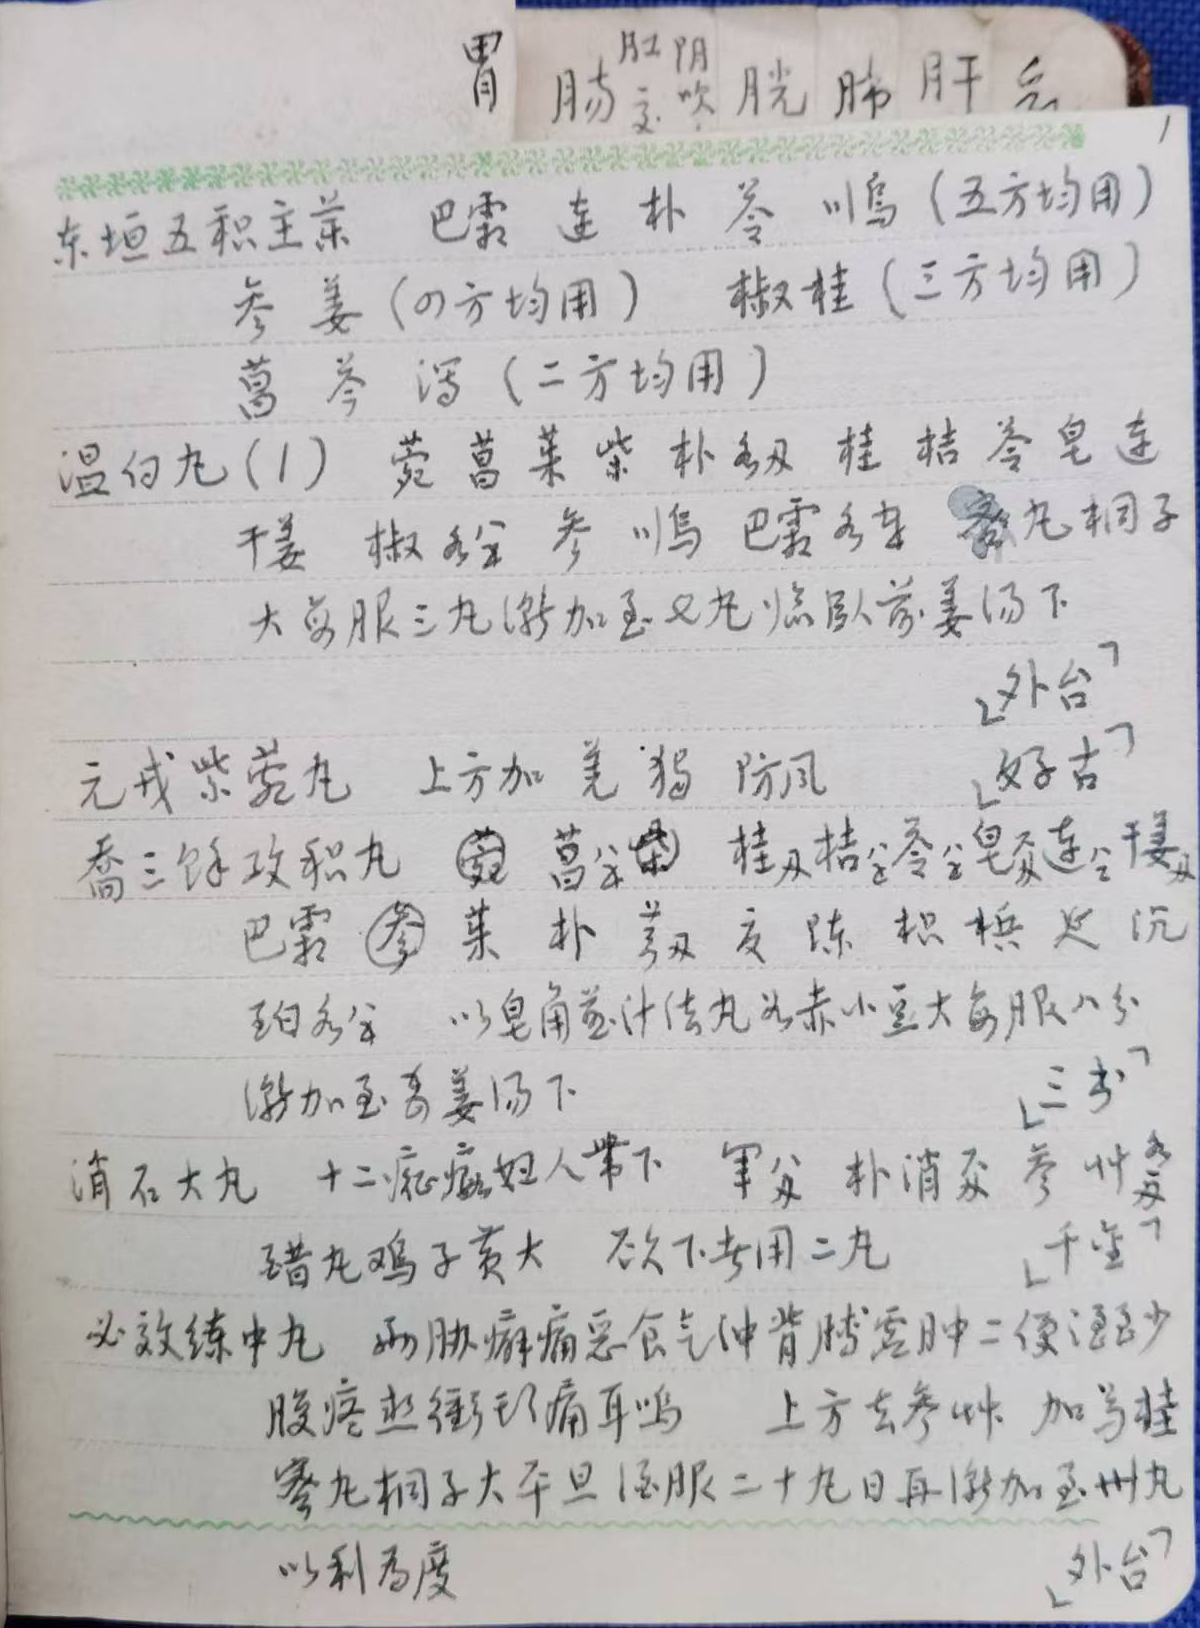 胃 肠 肛 阴 膀 肺 肝
交 吹
1
东垣五积主药 巴霜 连 朴 苓 川乌（五方均用）
参 姜（四方均用） 椒桂（三方均用）
菖 芩 泻（二方均用）
温白丸（1） 菀 菖 茱 柴 朴 桂 桔 苓 皂 连
干姜 椒 参 川乌 巴霜 各半 蜜丸桐子
大每服三丸渐加至七丸临卧前姜汤下
「外台」
元戎紫菀丸 上方加 羌 独 防风
「好古」
乔三馀攻积丸 菀 菖 柴 桂 桔 苓 皂 连 干姜
巴霜 参 茱 朴 陈 枳 槟 延 沉
珀 以皂角 汁法丸如赤小豆大每服八分
渐加至 姜汤下
「三书」
消石大丸 十二症瘕妇人带下 军 朴消 参 草
醋丸鸡子黄大 欲下者用二丸
「千金」
必效练中丸 两胁癖痛恶食气冲背膊虚肿二便涩少
腹疼热冲头痛耳鸣 上方去参草 加 桂
蜜丸桐子大平旦酒服二十丸日再渐加至卅丸
以利为度
「外台」